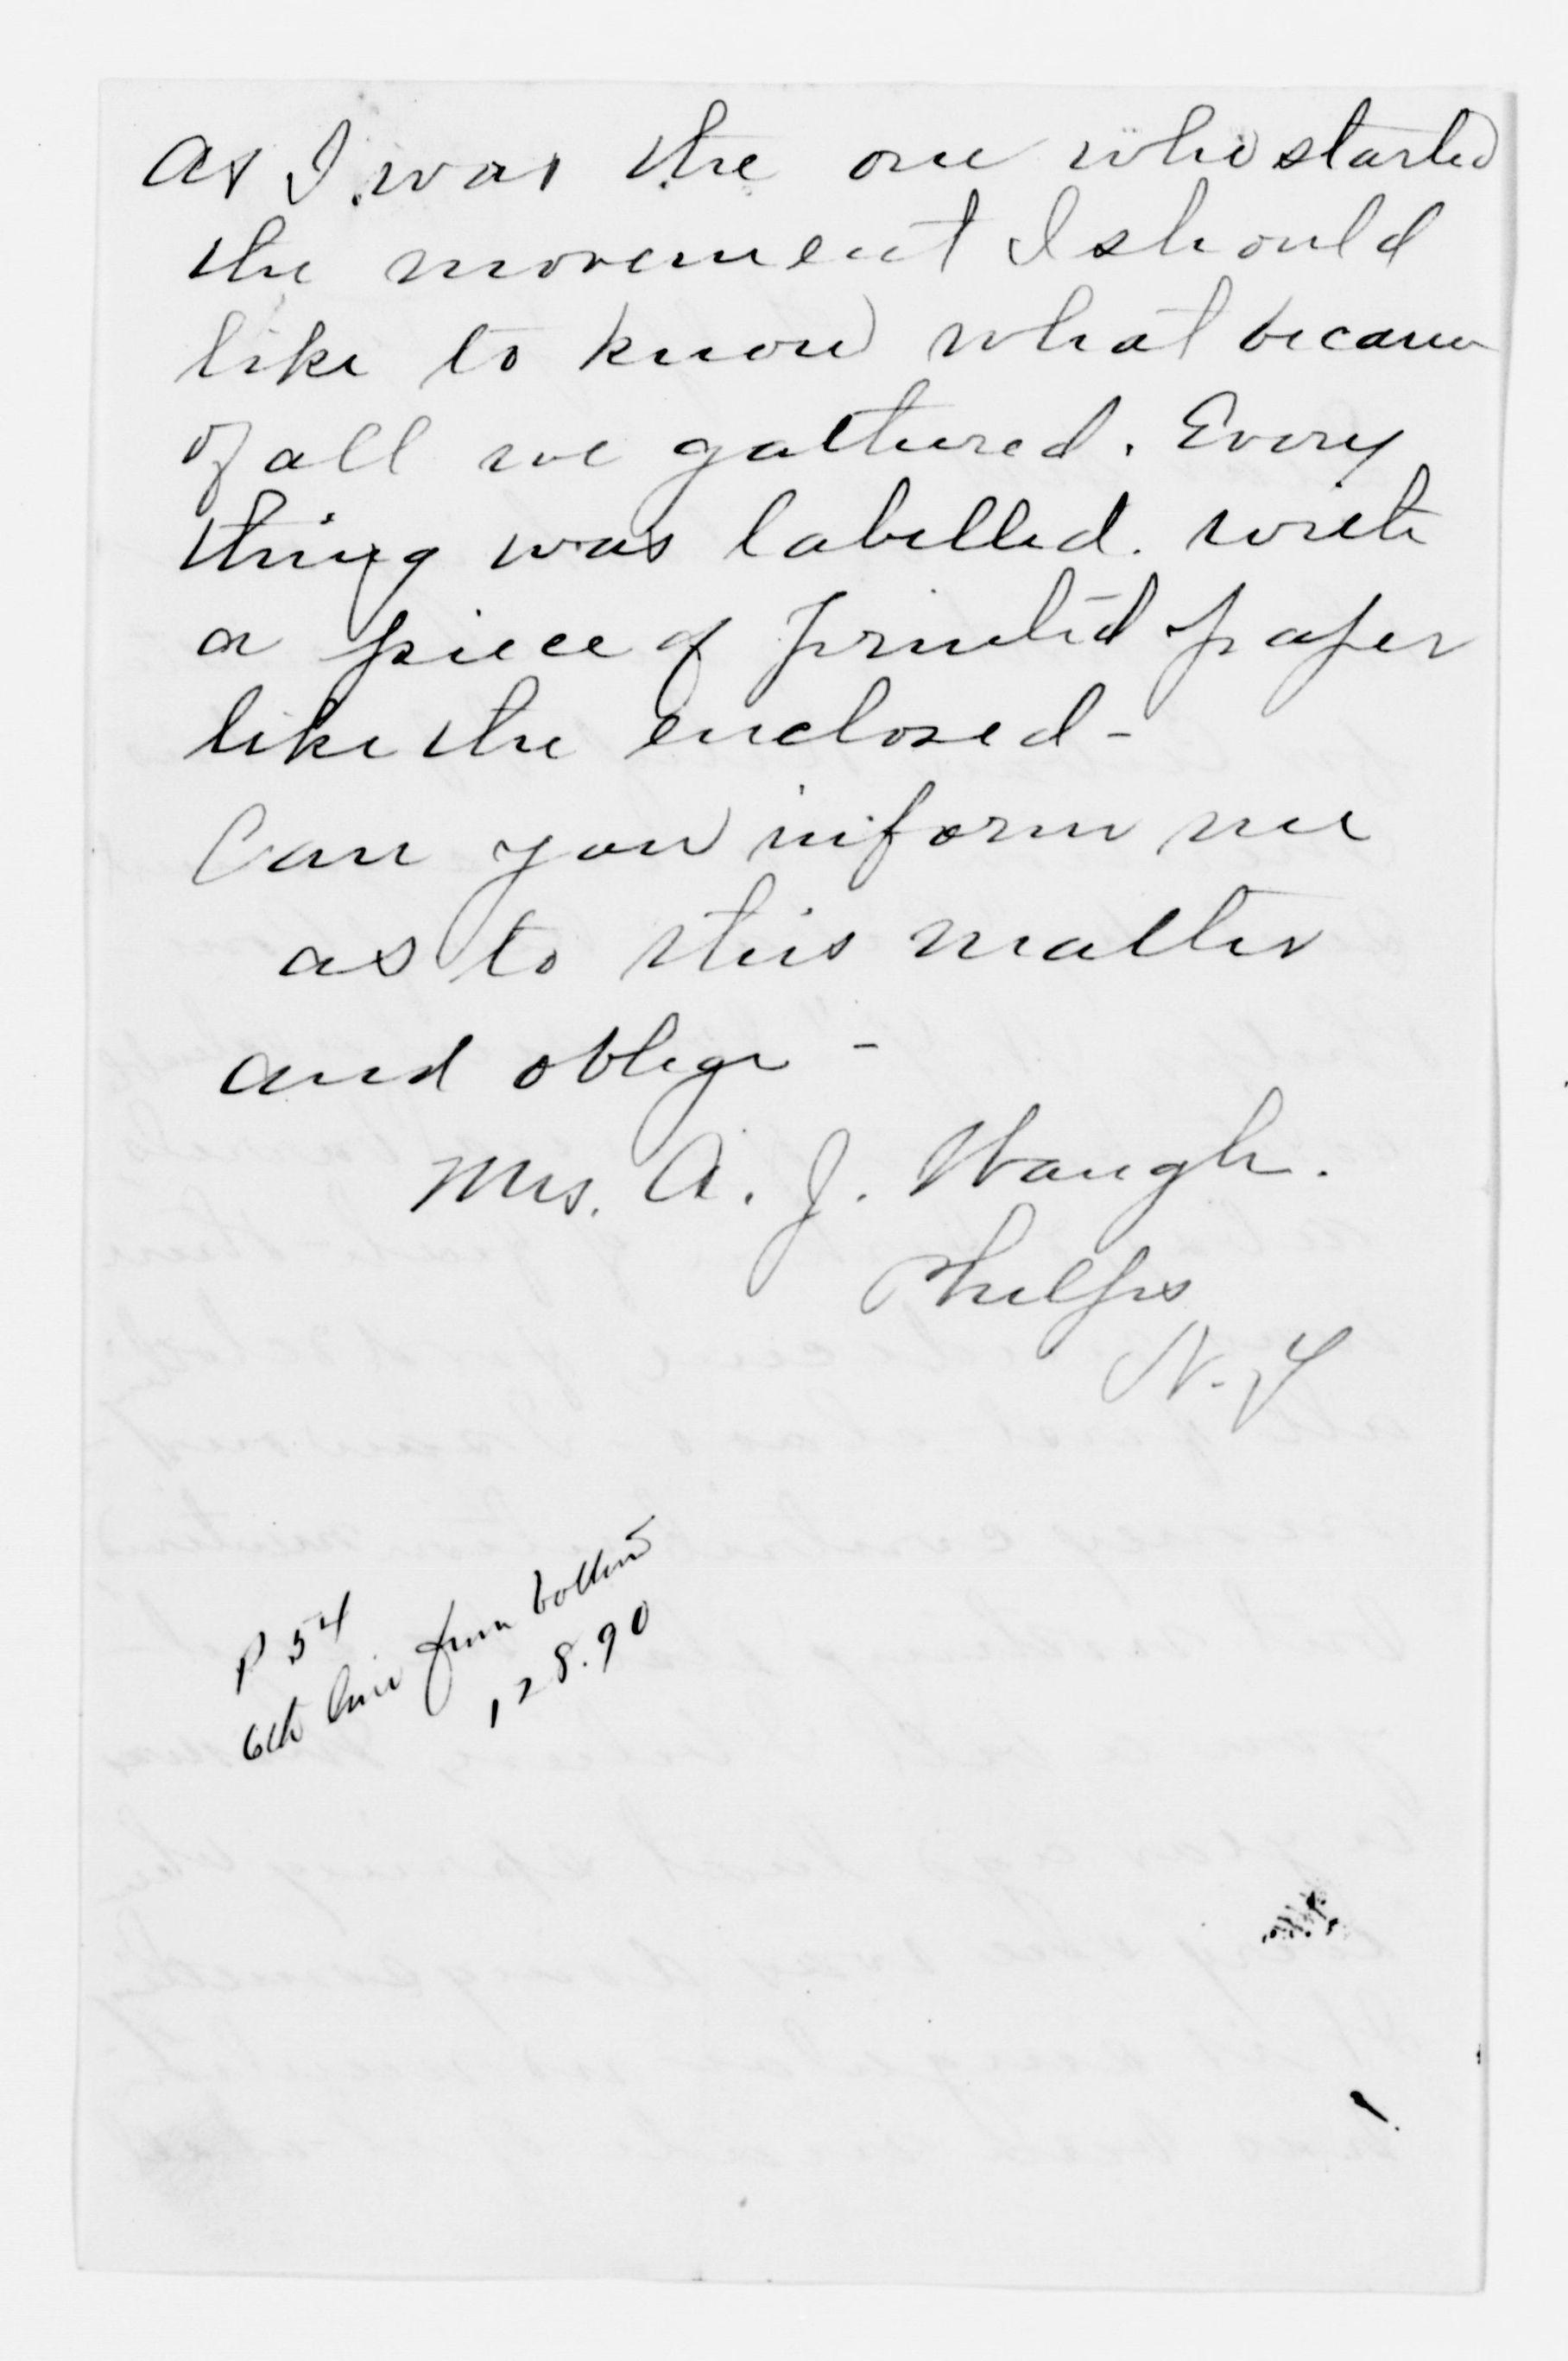 As I was the one who started
the movement I should
like to know what became
of all we gathered. Every
thing was labelled. with
a piece of printed paper
like the enclosed -
Can you inform me
as to this matter
and oblige -
Mrs. A. J. Waugh.
Phelps
N. Y
P 54
6th line from bottom
128.90